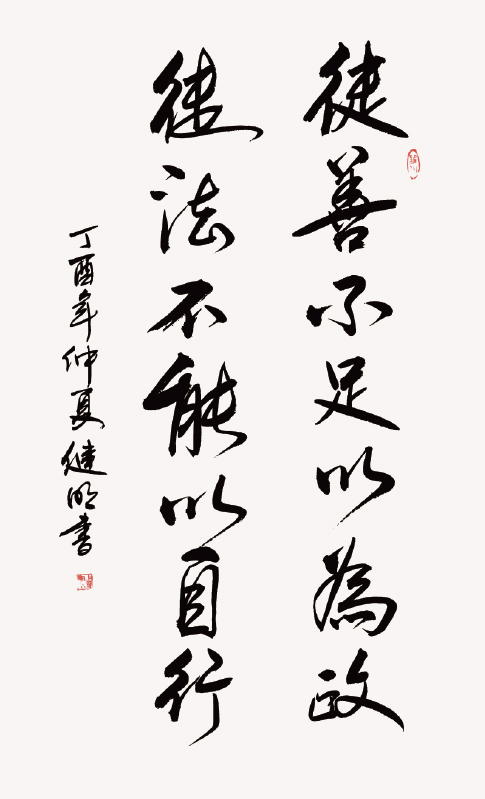 徒善不足以為政
徒法不能以自行
丁酉年仲夏继明書